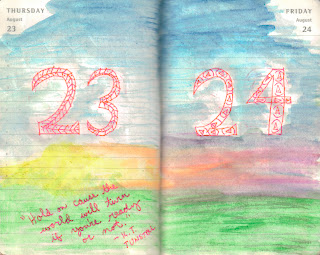 THURSDAY
August
23
23
"Hold on 'cause the
world will turn
if you're ready
or not."
-K.T.
TUNSTALL
FRIDAY
August
24
24